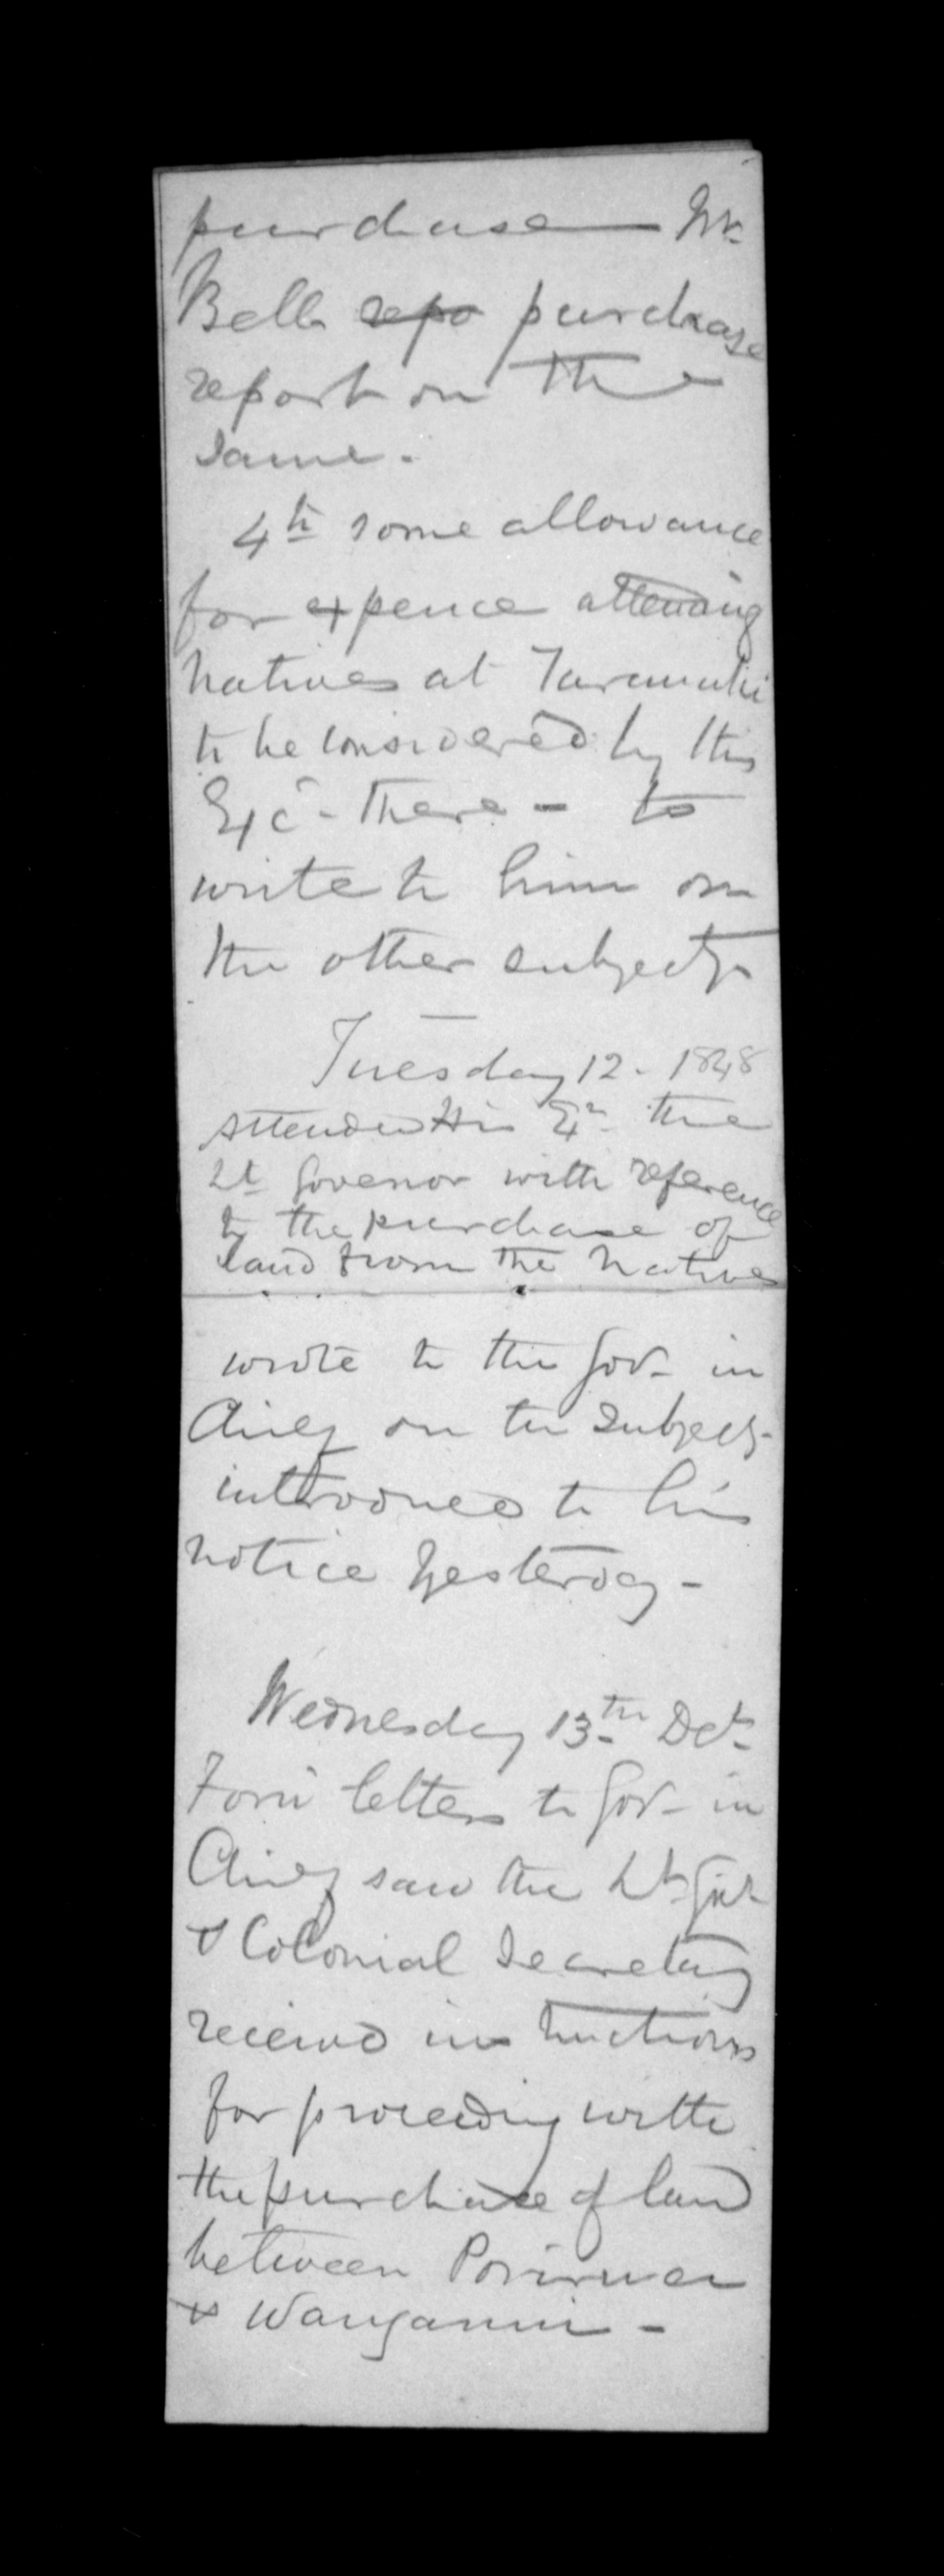 purchase Mr.
Bells repo purchase
report on the
same.
4th some allowance
for expence attending
Natives at Taranaki
to be considered by His
Exc - there - to
write to him on
the other subjects
Tuesday 12. 1848
Attended His Ex the
Lt Govenor with reference
to the purchase of
land from the Natives
wrote to the Gov- in
Chief on the subjects
introduced to his
notice yesterday -
Wednesday 13th Dec
Forwd letters to Gov- in
Chief saw the Lt Gov
& Colonial Secretary
received instructions
for proceeding with
the purchase of land
between Porirua
& Wanganui -